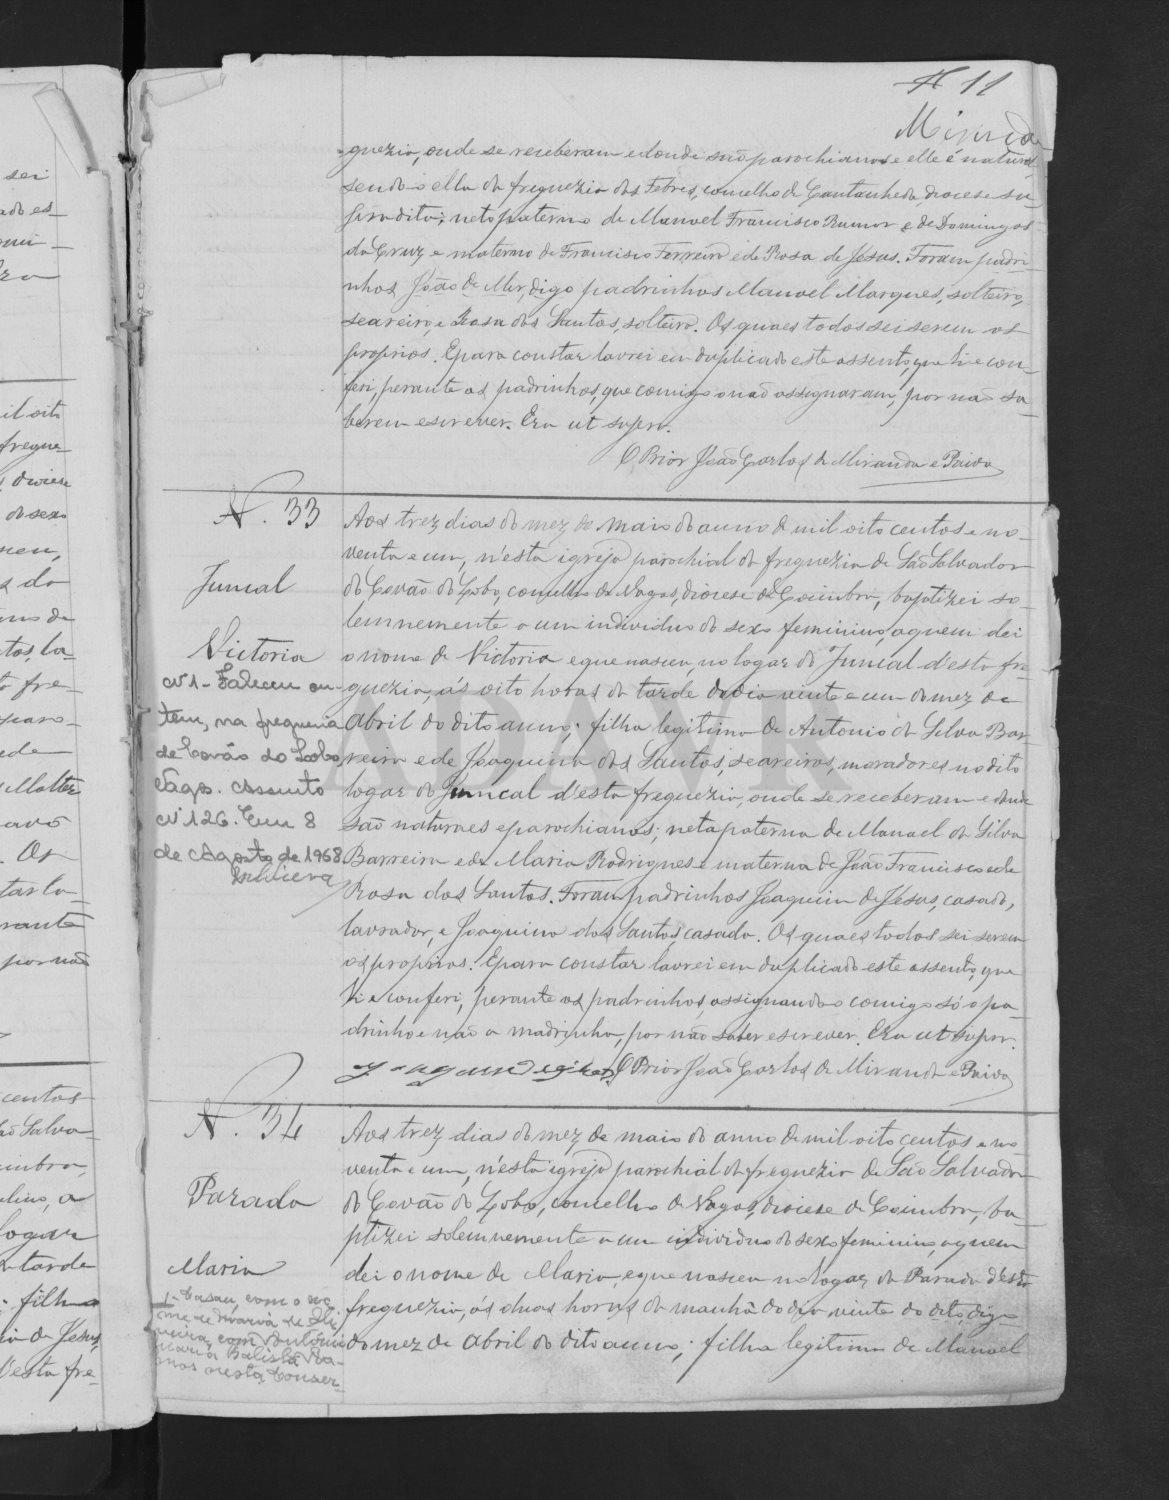 11
Miranda
guezia, onde se receberam e donde são parochianos e elle é natural,
sendo ella da freguezia das Febres, concelho de Cantanhede, diocese su
pradita; neto paterno de Manoel Francisco Rumor e de Domingas
da Cruz e materno de Francisco Ferreira e de Rosa de Jesus. Foram padri-
nhos João de Mir, digo padrinhos Manoel Marques, solteiro,
seareiro, e Rosa dos Santos, solteira. Os quaes todos sei serem os
proprios. E para constar lavrei em duplicado este assento, que li e con-
feri, perante os padrinhos, que comigo não assignaram, por não sa-
berem escrever. Era ut supra.
O Prior João Carlos de Miranda e Paiva
N. 33
Juncal
Victoria
Nº 1 - Faleceu on-
tem, na freguesia
de Covão do Lobo,
Vagos. Assento
Nº 126. Em 8
de Agosto de 1968
Aos trez dias do mez de maio do anno de mil oito centos e no-
venta e um, n'esta igreja parochial da freguezia de São Salvador
do Covão do Lobo, concelho de Vagos, diocese de Coimbra, baptizei so-
lemnemente a um individuo do sexo feminino, a quem dei
o nome de Victoria e que nasceu, no logar do Juncal d'esta fre-
guezia, ás oito horas da tarde do dia vinte e um do mez de
Abril do dito anno; filha legitima de Antonio da Silva Bar-
reira e de Joaquina dos Santos, seareiros, moradores no dito
logar do Juncal d'esta freguezia, onde se receberam e donde
são naturaes e parochianos; neta paterna de Manoel da Silva
Barreira e de Maria Rodrigues e materna de João Francisco e de
Rosa dos Santos. Foram padrinhos Joaquim de Jesus, casado,
lavrador, e Joaquina dos Santos, casada. Os quaes todos sei serem
os proprios. E para constar lavrei em duplicado este assento, que
li e conferi, perante os padrinhos, assignando comigo só o pa-
drinho e não a madrinha, por não saber escrever. Era ut supra.
O Prior João Carlos de Miranda e Paiva
N. 34
Parada
Maria
1- Casou com o no
me de Maria de Oli
veira, com António
Maria Batista Ra-
mos nesta Conser-
Aos trez dias do mez de maio do anno de mil oito centos e no
venta e um, n'esta igreja parochial da freguezia de São Salvador
do Covão do Lobo, concelho de Vagos, diocese de Coimbra, ba-
ptizei solemnemente a um individuo do sexo feminino, a quem
dei o nome de Maria, e que nasceu no logar da Parada d'esta
freguezia, ás duas horas da manhã do dia vinte do dito, digo
do mez de Abril do dito anno; filha legitima de Manoel
ADAVR